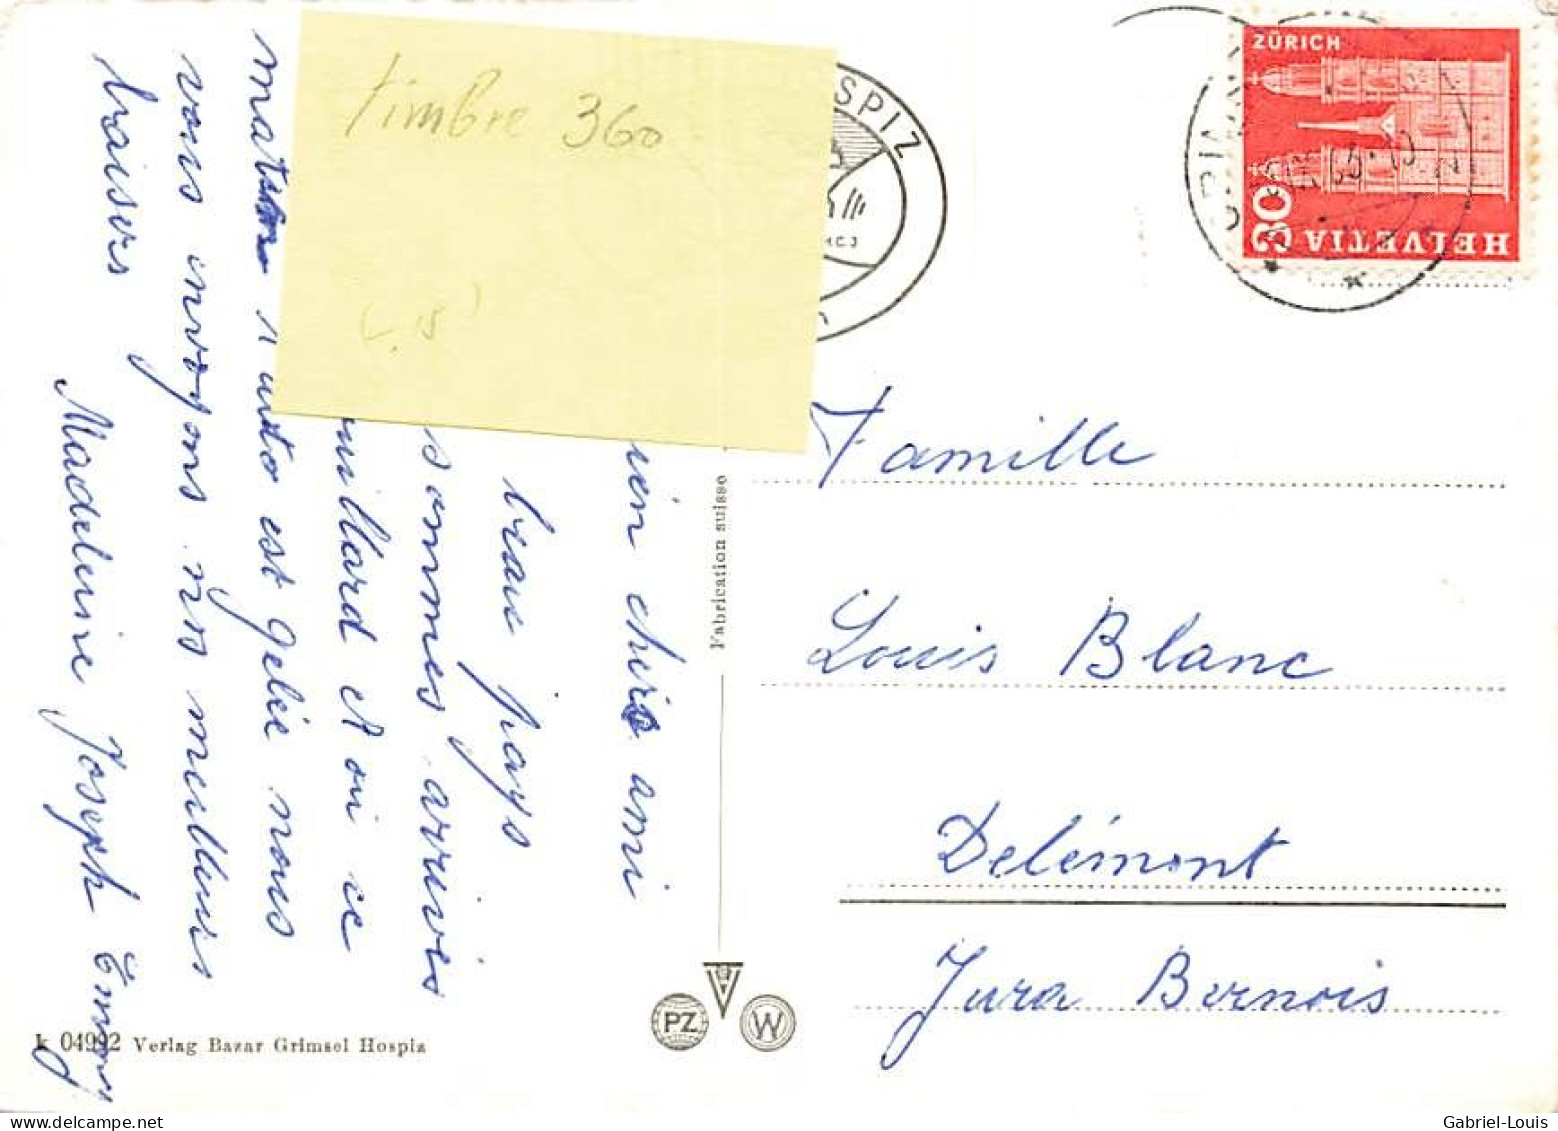 timbre 360
ien chers ami
beau pays
sommes arrivés
uillard et on ce
matin l'auto est gelée nous
vous envoyons nos meilleurs
baisers
Madeleine Joseph Emmy
k 04992 Verlag Bazar Grimsel Hospiz
Fabrication suisse
PZ
W
SPIZ
ZÜRICH
20
HELVETIA
Famille
Louis Blanc
Delémont
Jura Bernois
Gabriel-Louis